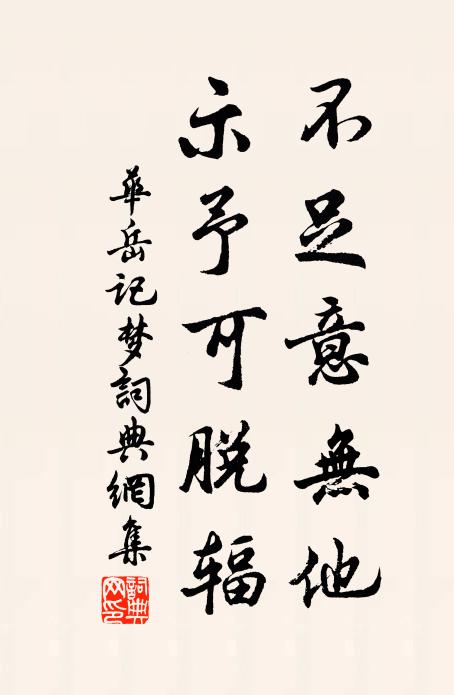 不足意無他
示予可脱辐
華岳记梦詞典網集
詞典网印